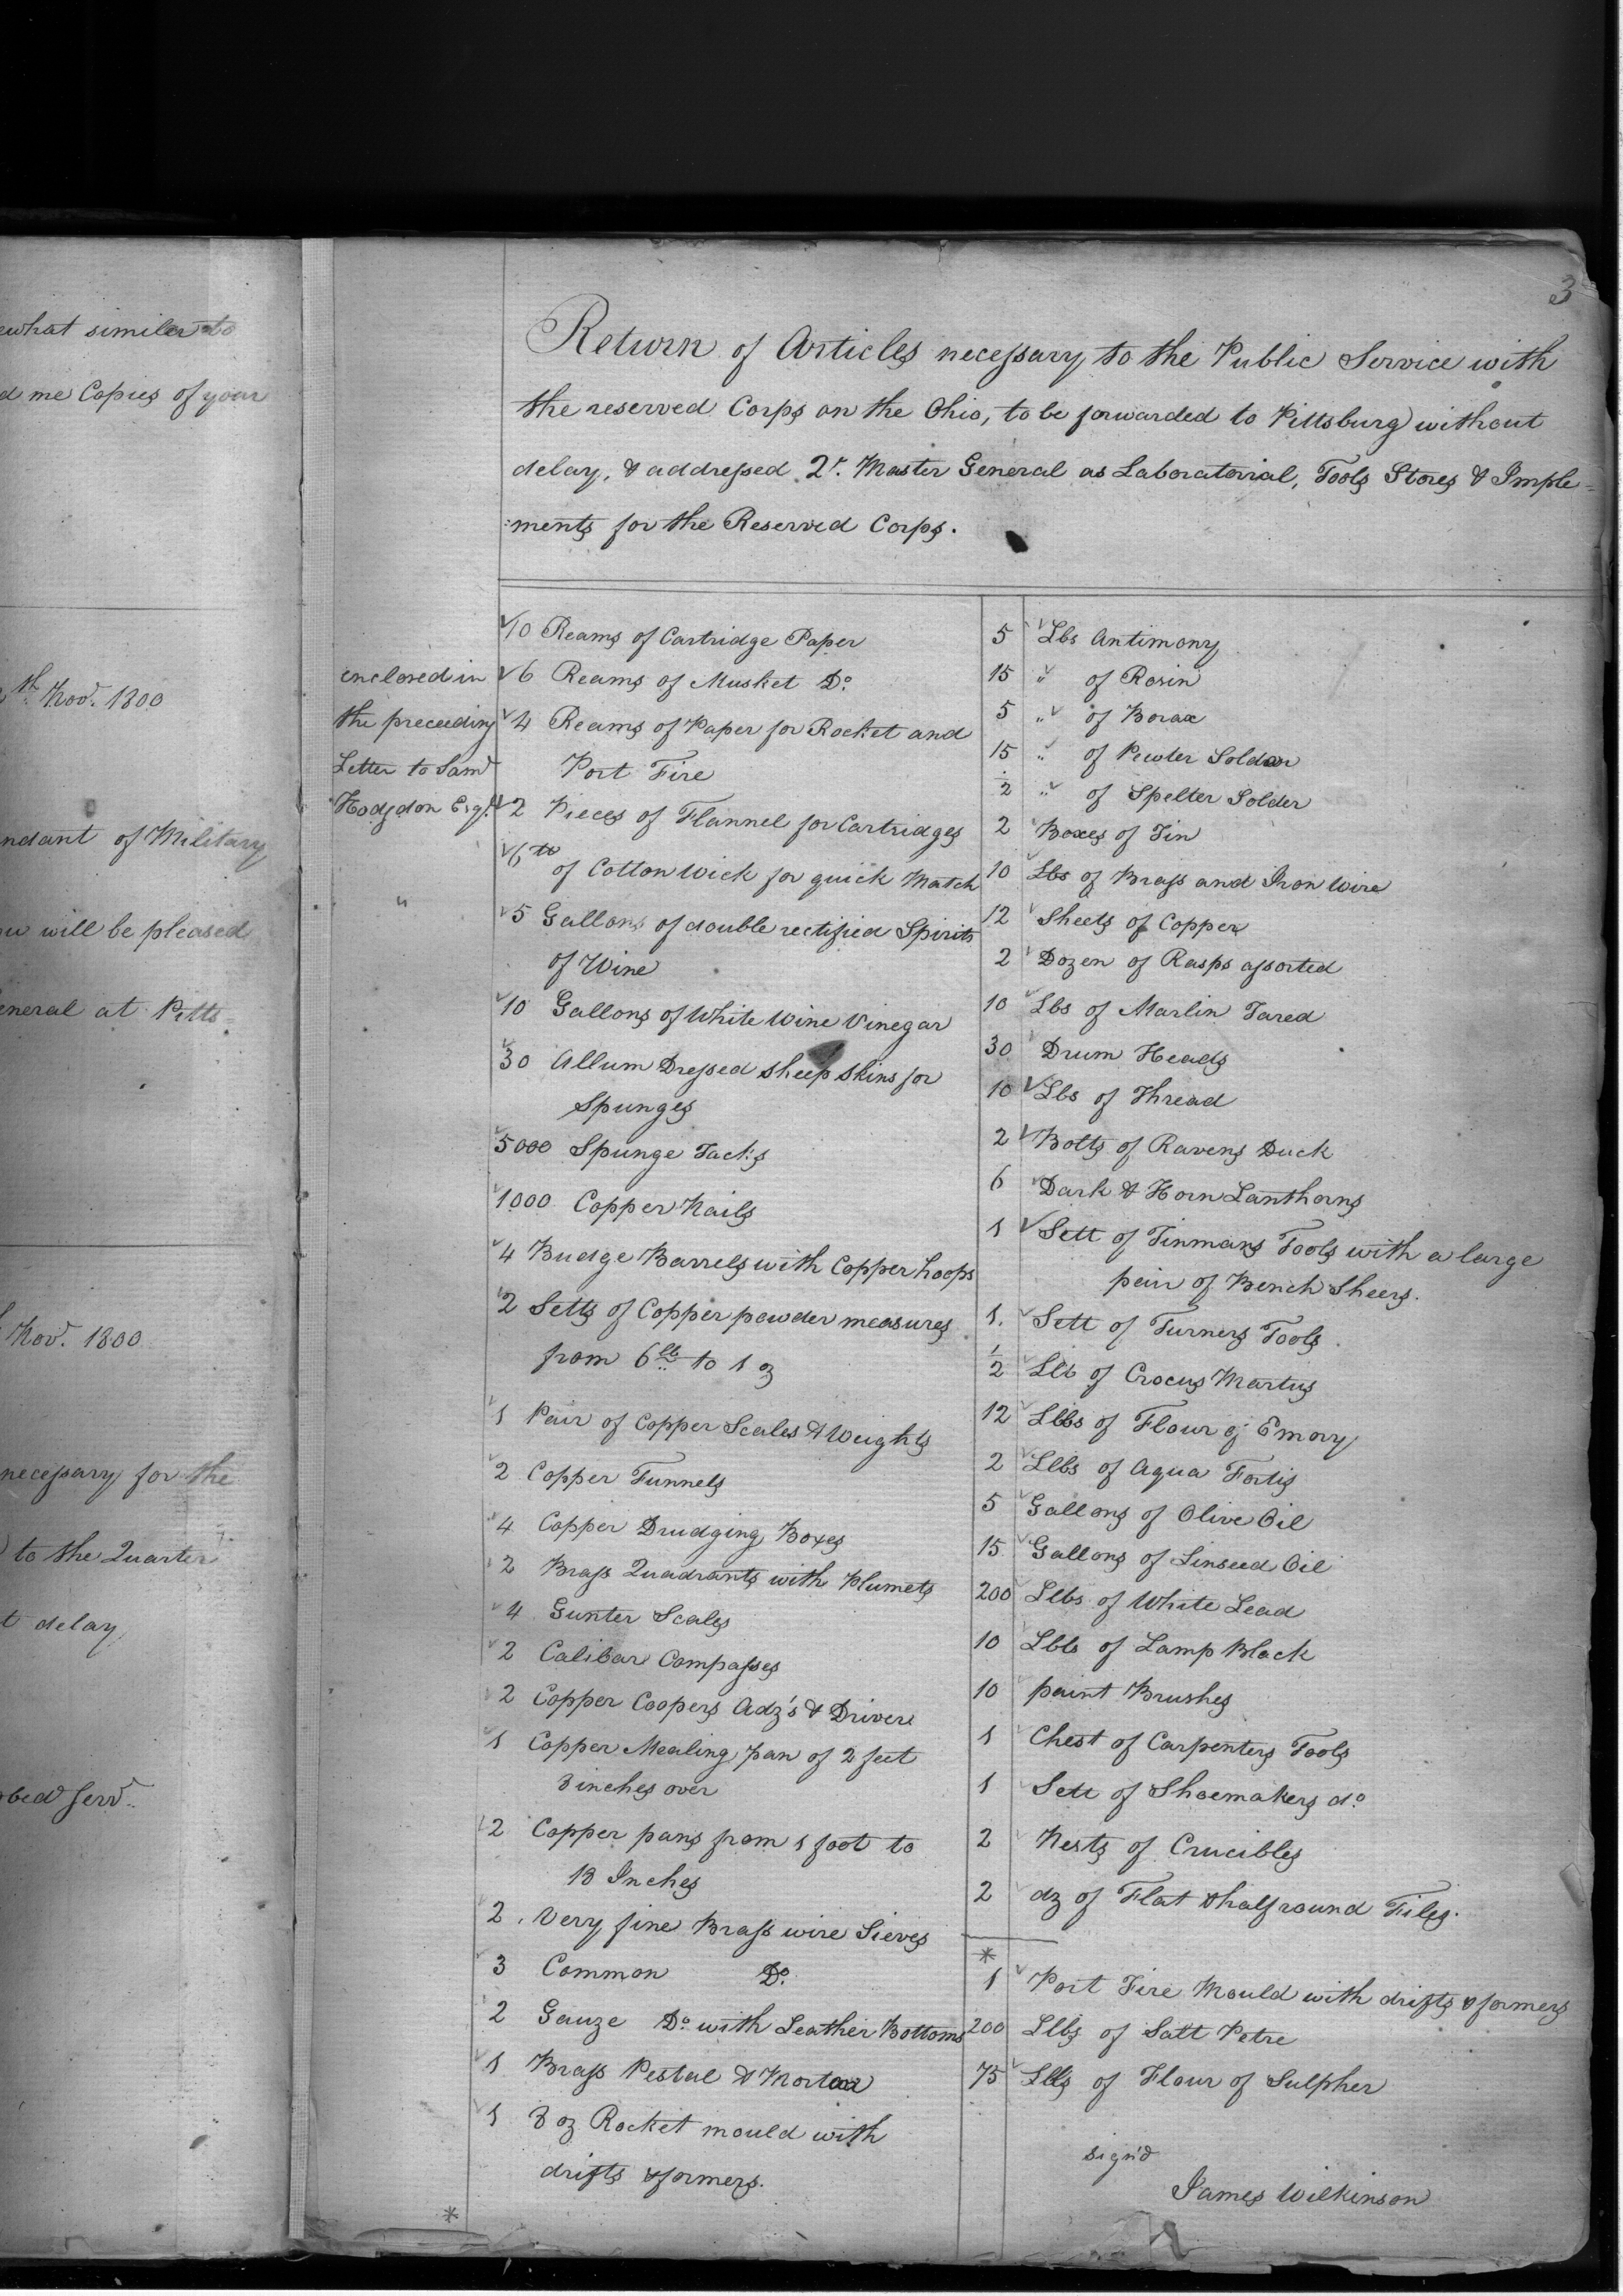 ewhat similer to
d me Copies of your
th Novr. 1800
ndant of Military
ou will be pleased
eneral at Pitts-
Novr. 1800
necessary for the
to the Quarter
t delay
obed servt.
3
Return of Articles necessary to the Public Service with
the reserved Corps on the Ohio, to be forwarded to Pittsburg without
delay, & addressed Qr. Master General as Laboratorial, Tools Stores & Imple=
:ments for the Reserved Corps.
enclosed in
the preceeding
Letter to Saml
Hodgdon Esqr.
"
10 Reams of Cartridge Paper
6 Reams of Musket Do.
4 Reams of Paper for Rocket and
Port Fire
2 Pieces of Flannel for Cartridges
6 lb of Cotton Wick for quick Match
5 Gallons of double rectified Spirits
of Wine
10 Gallons of White Wine Vinegar
30 Allum Dressed sheep skins for
Spunges
5000 Spunge Tacks
1000 Copper Nails
4 Budge Barrels with Copper hoops
2 Setts of Copper powder measures
from 6 lb to 1 oz
1 Pair of Copper Scales & Weights
2 Copper Funnels
4 Copper Drudging Boxes
2 Brass Quadrants with Plumets
4 Gunter Scales
2 Calibar Compasses
2 Copper Coopers Adz's & Driver
1 Copper Mealing pan of 2 feet
8 inches over
2 Copper pans from 1 foot to
18 Inches
2 Very fine Brass wire Sieves
3 Common Do.
2 Gauze Do with Leather Bottoms
1 Brass Pestal & Mortar
1 8 oz Rocket mould with
drifts & formers.
*
5 Lbs Antimony
15 " of Rosin
5 " of Borax
15 " of Pewter Solder
2 " of Spelter Solder
2 Boxes of Tin
10 Lbs of Brass and Iron Wire
12 Sheets of Copper
2 Dozen of Rasps assorted
10 Lbs of Marlin Tared
30 Drum Heads
10 Lbs of Thread
2 Bolts of Ravens Duck
6 Dark & Horn Lanthorns
1 Sett of Tinmans Tools with a large
pair of Bench Sheers.
1. Sett of Turners Tools
1/2 Llb of Crocus Martus
12 Llbs of Flour of Emory
2 Llbs of Aqua Fortis
5 Gallons of Olive Oil
15 Gallons of Linseed Oil
200 Llbs of White Lead
10 Lbls of Lamp Black
10 paint Brushes
1 Chest of Carpenters Tools
1 Sett of Shoemakers do
2 Nests of Crucibles
2 dz of Flat & half round Files.
*
1 Port Fire Mould with drifts & formers
200 Llbs of Salt Petre
75 Llbs of Flour of Sulpher
sign'd
James Wilkinson